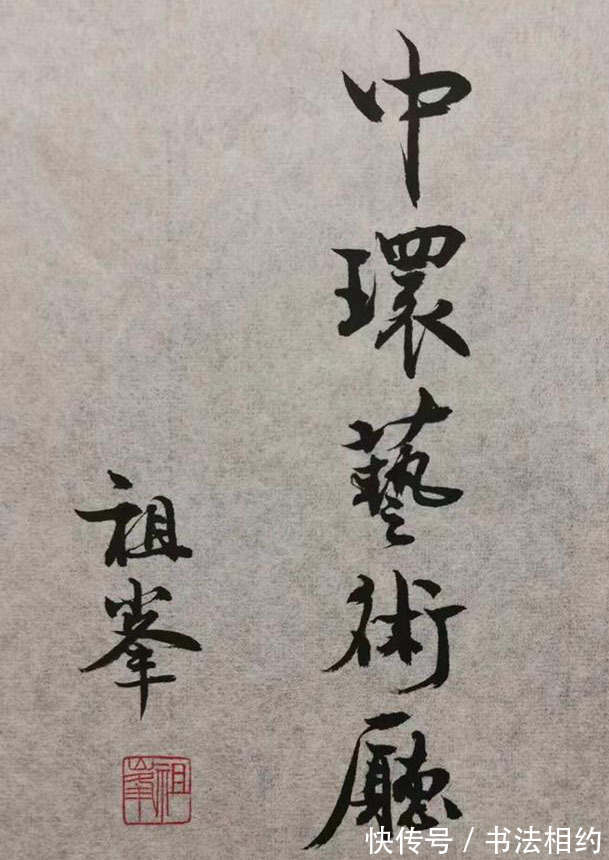 中環藝術廳
祖峯
祖峯
快传号 / 书法相约